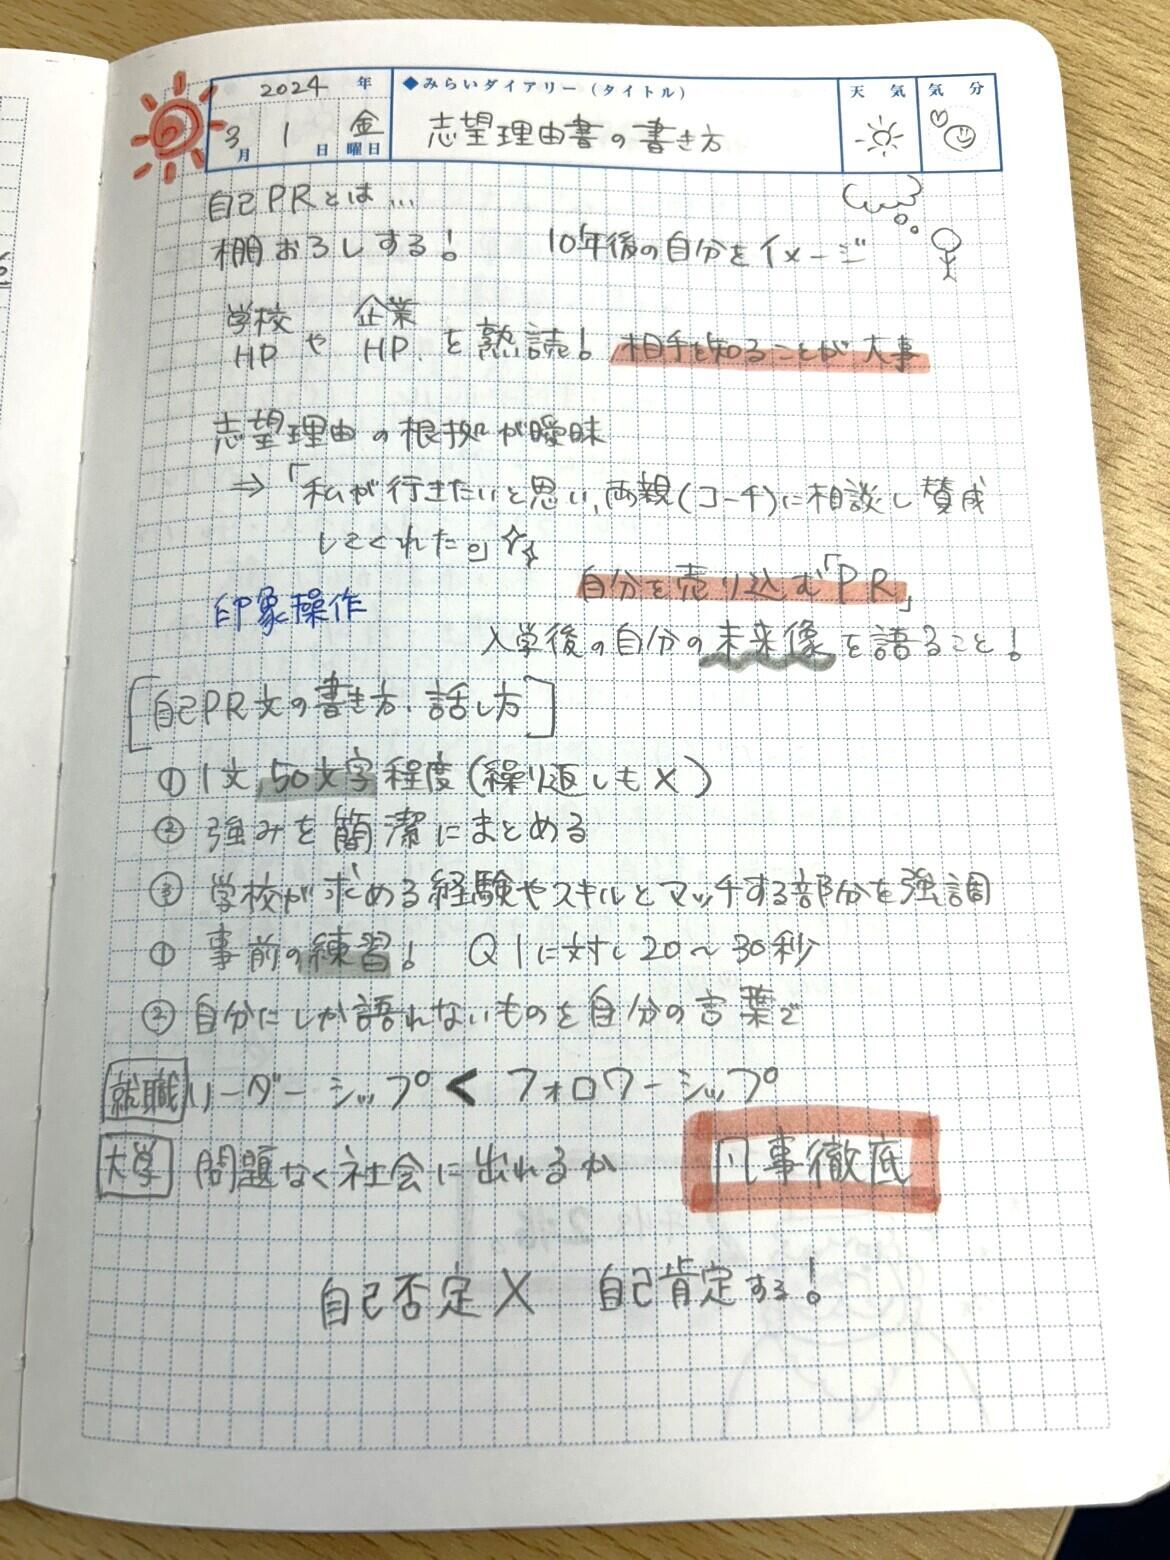 2024 年 ◆みらいダイアリー（タイトル） 天 気 気 分
3月 1日 金曜日 志望理由書の書き方
自己PRとは…
棚おろしする! 10年後の自分をイメージ
学校HPや企業HPを熟読! 相手を知ることが大事
志望理由の根拠が曖昧
⇒「私が行きたいと思い、両親(コーチ)に相談し賛成
してくれた。」
自分を売り込む「PR」
印象操作
入学後の自分の未来像を語ること!
[自己PR文の書き方、話し方]
① 1文50文字程度(繰り返しもX)
② 強みを簡潔にまとめる
③ 学校が求める経験やスキルとマッチする部分を強調
① 事前の練習! Q1に対し20〜30秒
② 自分にしか語れないものを自分の言葉で
就職 リーダーシップ < フォロワーシップ
大学 問題なく社会に出れるか 凡事徹底
自己否定X 自己肯定する!